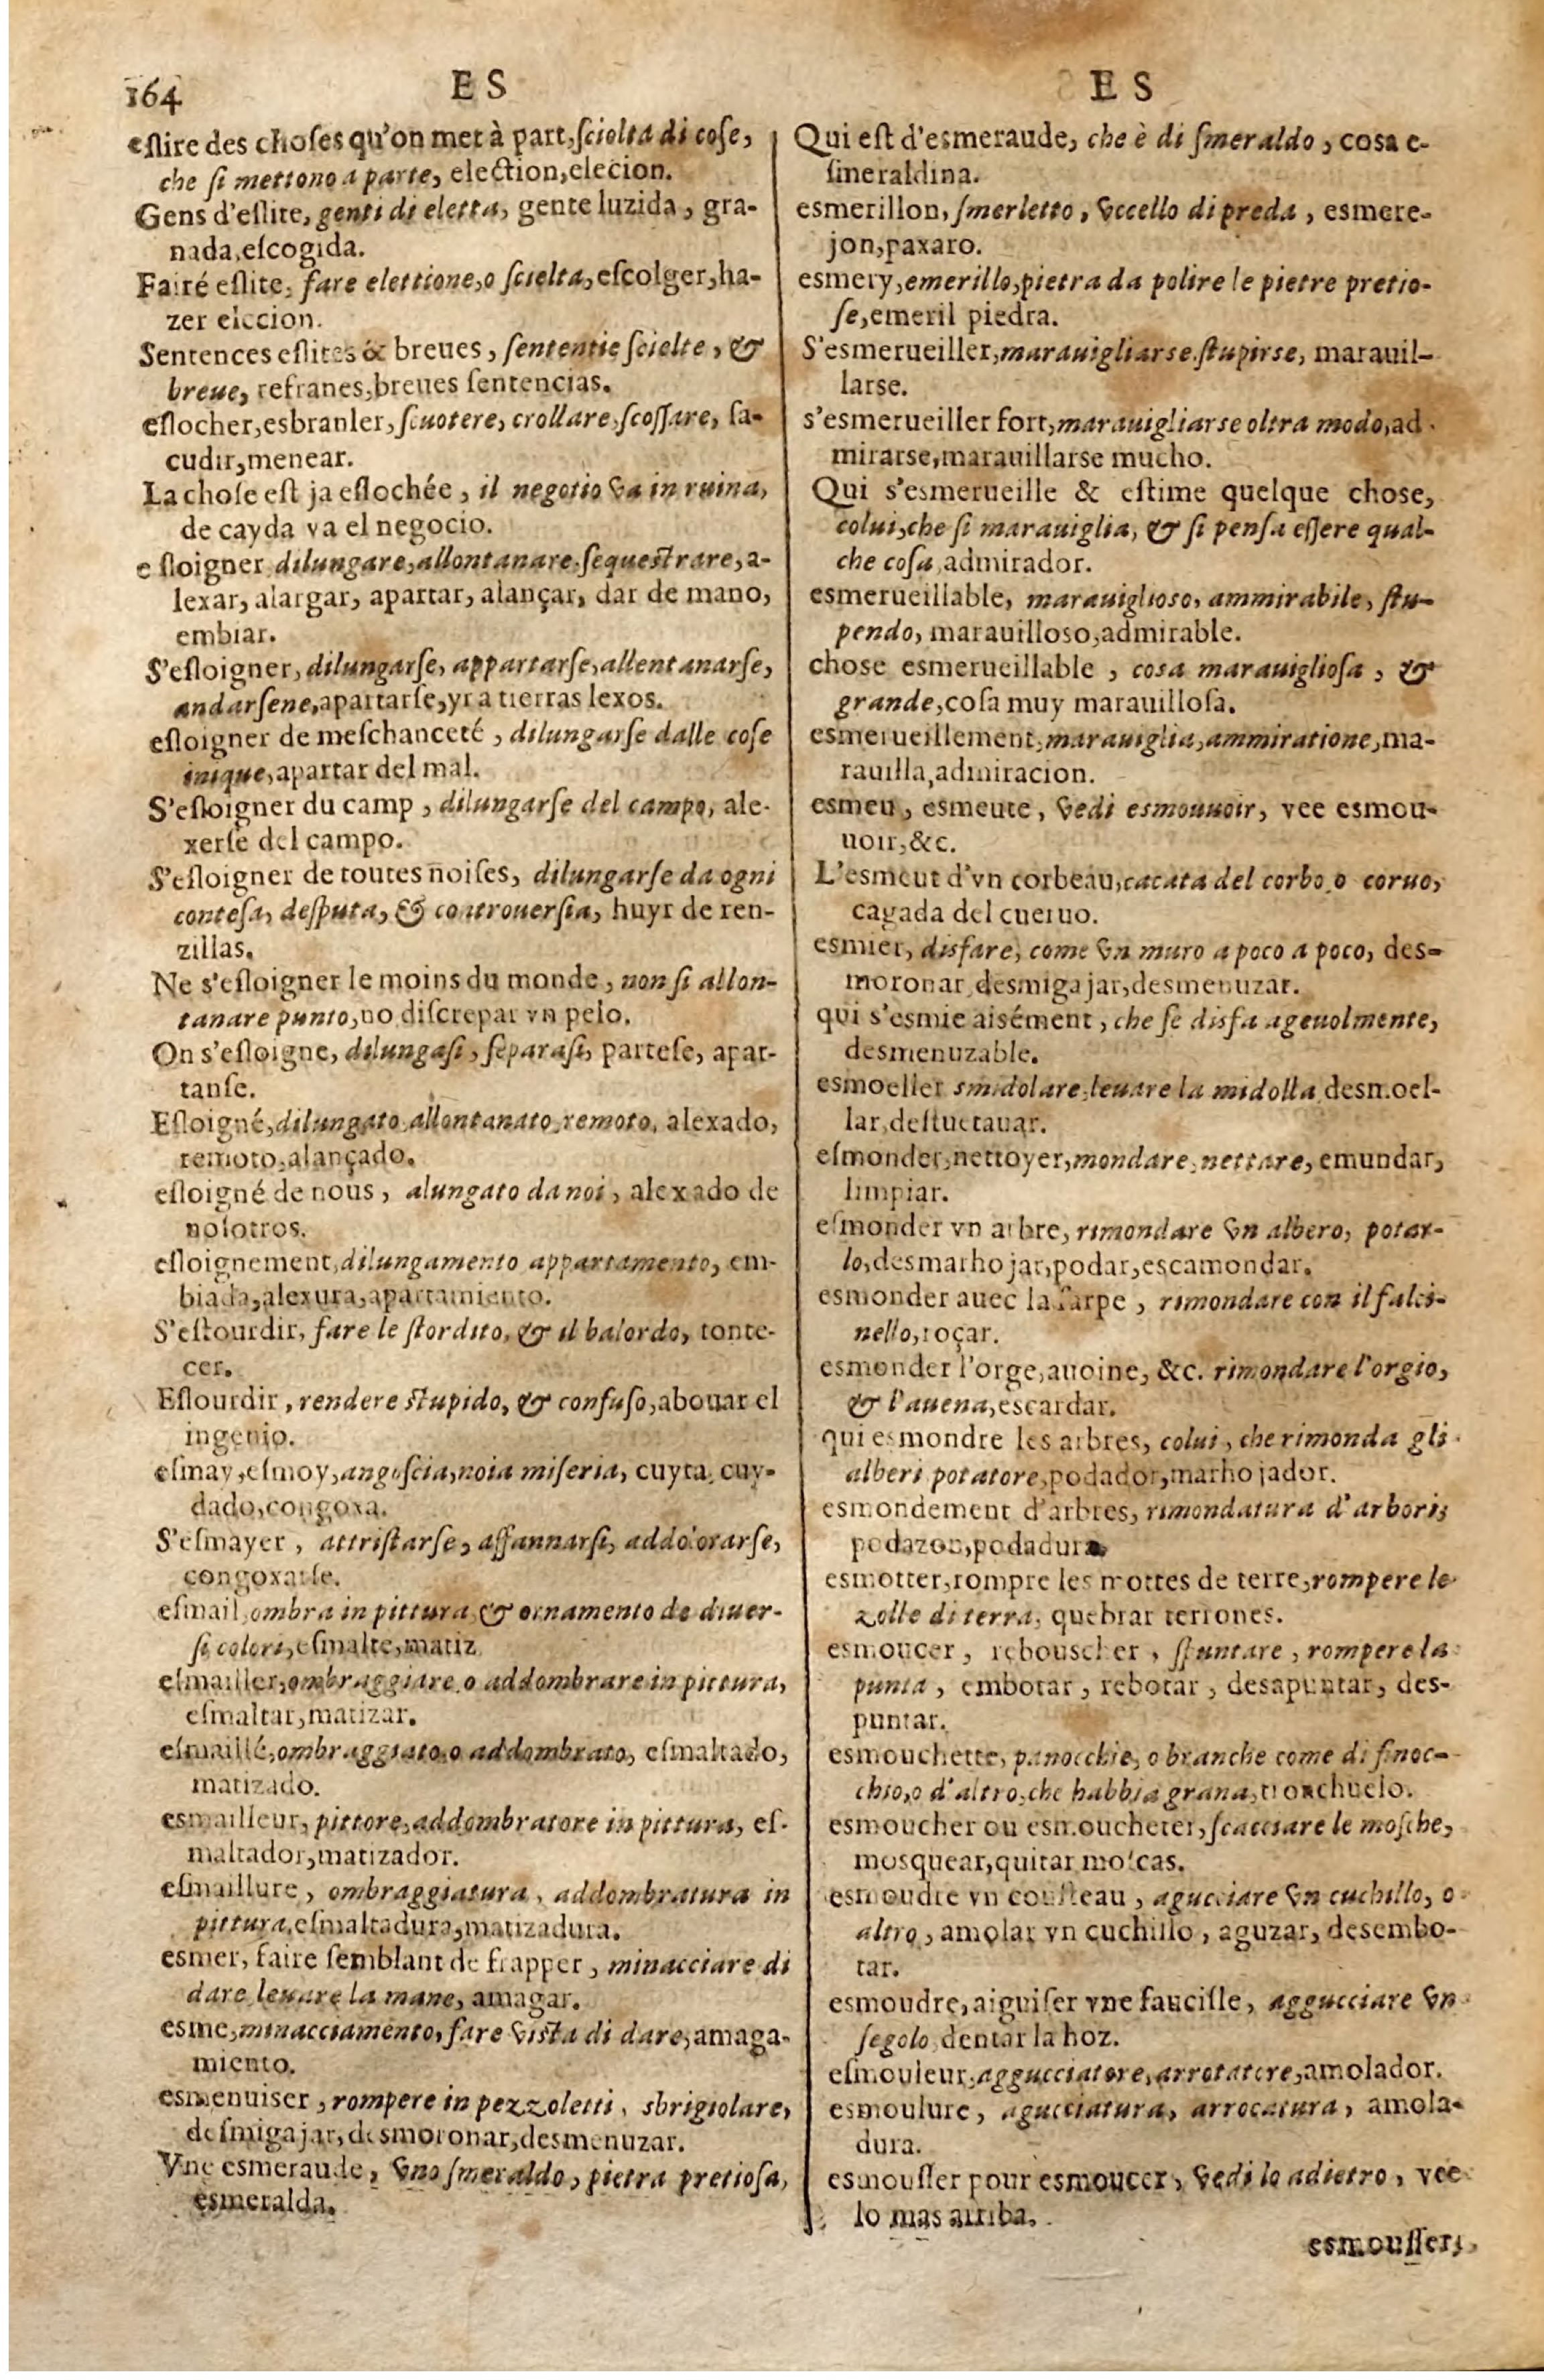 164
ES
ES
eſlire des choſes qu'on met à part, ſcielta di coſe,
che ſi mettono a parte, election, elecion.
Gens d'eſlite, genti di eletta, gente luzida, gra-
nada, eſcogida.
Faire eſlite, fare elettione, o ſcielta, eſcolger, ha-
zer eleccion.
Sentences eſlites & breues, ſententie ſcielte, &
breue, refranes, breues ſentencias.
eſlocher, esbranler, ſcuotere, crollare, ſcoſſare, ſa-
cudir, menear.
La choſe eſt ja eſlochée, il negotio va in ruina,
de cayda va el negocio.
eſloigner dilungare, allontanare, ſequeſtrare, a-
lexar, alargar, apartar, alançar, dar de mano,
embiar.
S'eſloigner, dilungarſe, appartarſe, allentanarſe,
andarſene, apartarſe, yr a tierras lexos.
eſloigner de meſchanceté, dilungarſe dalle coſe
inique, apartar del mal.
S'eſloigner du camp, dilungarſe del campo, ale-
xerſe del campo.
S'eſloigner de toutes noiſes, dilungarſe da ogni
conteſa, deſputa, & controuerſia, huyr de ren-
zillas.
Ne s'eſloigner le moins du monde, non ſi allon-
tanare punto, no diſcrepar vn pelo.
On s'eſloigne, dilungaſi, ſeparaſi, parteſe, apar-
tanſe.
Eſloigné, dilungato, allontanato, remoto, alexado,
remoto, alançado.
eſloigné de nous, alungato da noi, alexado de
noſotros.
eſloignement, dilungamento appartamento, em-
biada, alexura, apartamiento.
S'eſtourdir, fare le ſtordito, & il balordo, tonte-
cer.
Eſlourdir, rendere ſtupido, & confuſo, abouar el
ingenio.
eſmay, eſmoy, angoſcia, noia miſeria, cuyta, cuy-
dado, congoxa.
S'eſmayer, attriſtarſe, affannarſi, addolorarſe,
congoxarſe.
eſmail, ombra in pittura, & ornamento de diuer-
ſi colori, eſmalte, matiz
eſmailler, ombraggiare, o addombrare in pittura,
eſmaltar, matizar.
eſmaillé, ombraggiato, o addombrato, eſmaltado,
matizado.
esmailleur, pittore, addombratore in pittura, eſ-
maltador, matizador.
eſmaillure, ombraggiatura, addombratura in
pittura, eſmaltadura, matizadura.
esmer, faire ſemblant de frapper, minacciare di
dare, leuare la mane, amagar.
esme, minacciamento, fare viſta di dare, amaga-
miento.
esmenuiser, rompere in pezzoletti, sbrigiolare,
deſmigajar, desmoronar, desmenuzar.
Vne esmeraude, vno ſmeraldo, pietra pretioſa,
esmeralda.
Qui eſt d'esmeraude, che è di ſmeraldo, cosa e-
ſmeraldina.
esmerillon, ſmerletto, vccello di preda, esmere-
jon, paxaro.
esmery, emerillo, pietra da polire le pietre pretio-
ſe, emeril piedra.
S'esmerueiller, marauigliarse, ſtupirse, marauil-
larse.
s'esmerueiller fort, marauigliarse oltra modo, ad-
mirarse, marauillarse mucho.
Qui s'esmerueille & eſtime quelque chose,
colui, che ſi marauiglia, & ſi penſa eſſere qual-
che coſa, admirador.
esmerueillable, marauiglioso, ammirabile, ſtu-
pendo, marauilloso, admirable.
chose esmerueillable, cosa marauiglioſa, &
grande, coſa muy marauilloſa.
esmerueillement, marauiglia, ammiratione, ma-
rauilla, admiracion.
esmeu, esmeute, vedi esmouuoir, vee esmou-
uoir, &c.
L'esmeut d'vn corbeau, cacata del corbo, o coruo,
cagada del cueruo.
esmier, disfare, come vn muro a poco a poco, des-
moronar, desmigajar, desmenuzar.
qui s'esmie aisément, che ſe disfa ageuolmente,
desmenuzable.
esmoeller smidolare, leuare la midolla, desmoel-
lar, deſtuetauar.
eſmonder, nettoyer, mondare, nettare, emundar,
limpiar.
eſmonder vn arbre, rimondare vn albero, potar-
lo, desmarhojar, podar, escamondar.
esmonder auec la ſarpe, rimondare con il falci-
nello, roçar.
esmonder l'orge, auoine, &c. rimondare l'orgio,
& l'auena, escardar.
qui esmondre les arbres, colui, che rimonda gli
alberi potatore, podador, marhojador.
esmondement d'arbres, rimondatura d'arbori,
podazon, podadura.
esmotter, rompre les mottes de terre, rompere le
zolle di terra, quebrar terrones.
esmoucer, rebouscher, ſpuntare, rompere la
punta, embotar, rebotar, desapuntar, des-
puntar.
esmouchette, panocchie, o branche come di finoc-
chio, o d'altro, che habbia grana, tronchuelo.
esmoucher ou esmoucheter, ſcacciare le moſche,
mosquear, quitar moſcas.
esmoudre vn couſteau, agucciare vn cuchillo, o
altro, amolar vn cuchillo, aguzar, desembo-
tar.
esmoudre, aiguiſer vne faucille, aggucciare vn
ſegolo, dentar la hoz.
eſmouleur, aggucciatore, arrotatore, amolador.
esmoulure, agucciatura, arrocatura, amola-
dura.
esmouſſer pour esmoucer, vedi lo adietro, vee
lo mas arriba.
esmouſſer,